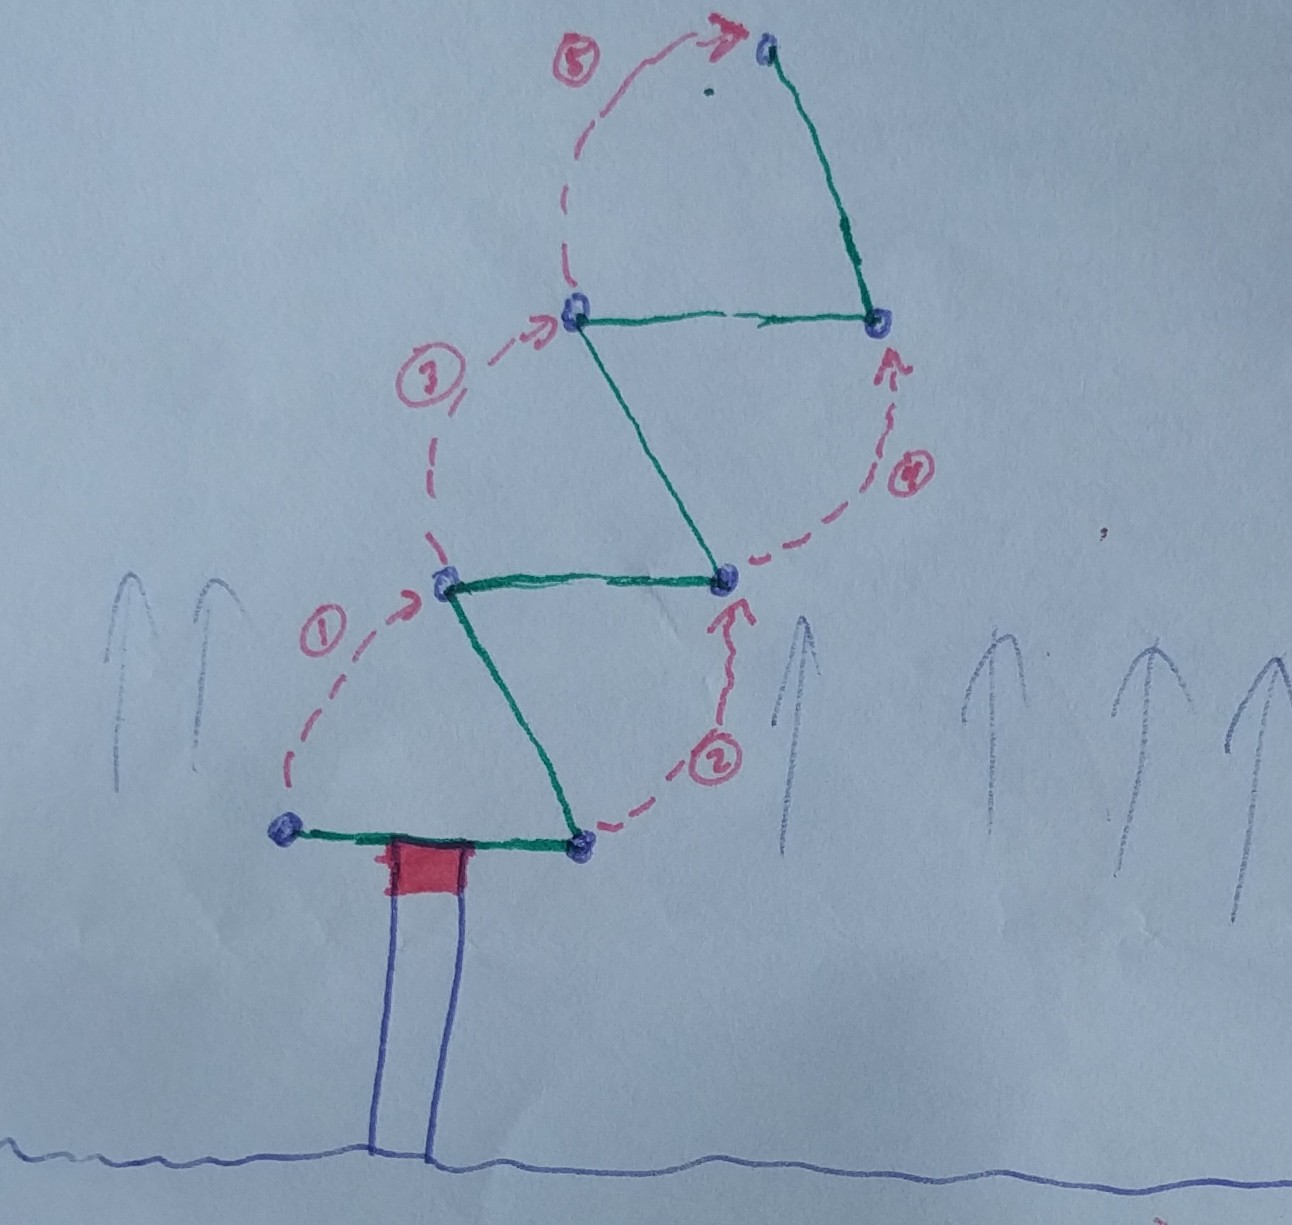 5
3
4
1
2